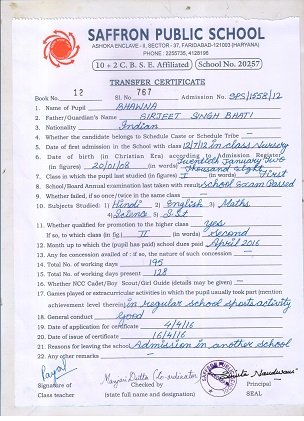 SAFFRON PUBLIC SCHOOL
ASHOKA ENCLAVE - II, SECTOR - 37, FARIDABAD-121003 (HARYANA)
Phone : 2255778, 4129198
10 + 2 C. B. S. E. Affiliated) (School No. 20257
TRANSFER CERTIFICATE
Book No. 12 Sl. No. 767 Admission No. SPS/1558/12
1. Name of Pupil BHAWNA
2. Father/Guardian's Name SIRJEET SINGH BHATI
3. Nationality Indian
4. Whether the candidate belongs to Schedule Caste or Schedule Tribe
5. Date of first admission in the School with class 12/7/12 in class Nursery
6. Date of birth (in Christian Era) according to Admission Register
(in figures) 20/01/08 (in words) Twentieth January two thousand eight
7. Class in which the pupil last studied (in figures) I (in words) First
8. School/Board Annual examination last taken with result School Exam Passed
9. Whether failed, if so once/twice in the same class
10. Subjects Studied : 1) Hindi 2) English 3) Maths
4) Science 5) S.St
11. Whether qualified for promotion to the higher class yes
If so, to which class (in fig) II (in words) Second
12. Month up to which the (pupil has paid) school dues paid April 2016
13. Any fee concession availed of : if so, the nature of such concession
14. Total No. of working days 195
15. Total No. of working days present 128
16. Whether NCC Cadet/Boy Scout/Girl Guide (details may be given)
17. Games played or extracurricular activities in which the pupil usually took part (mention
achievement level therein) in regular school sports activity
18. General conduct Good
19. Date of application for certificate 4/4/16
20. Date of issue of certificate 16/4/16
21. Reasons for leaving the school Admission in another School
22. Any other remarks
Signature of Class teacher
Checked by
(state full name and designation)
Principal
SEAL